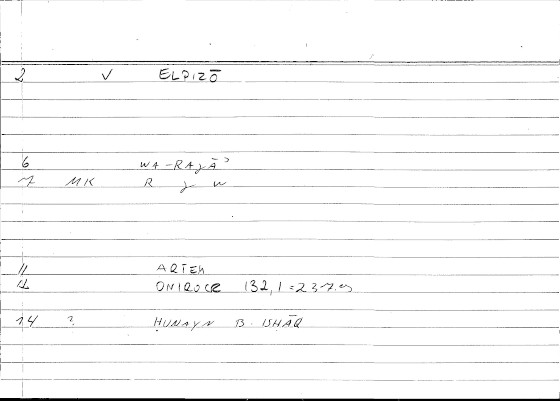 2 V ELPIZŌ
6 WA-RAjĀʾ
7 MK R j w
11 ARTEM
12 ONIROCR 132,1 = 237.
14 ? ḤUNAYN B. ISḤĀQ